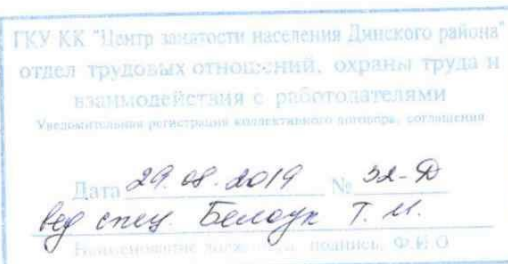 ГКУ КК "Центр занятости населения Динского района"
отдел трудовых отношений, охраны труда и
взаимодействия с работодателями
Уведомительная регистрация коллективного договора, соглашения
Дата 29.08.2019 № 32-Д
вед спец. Т. И.
Наименование должности, подпись, Ф.И.О